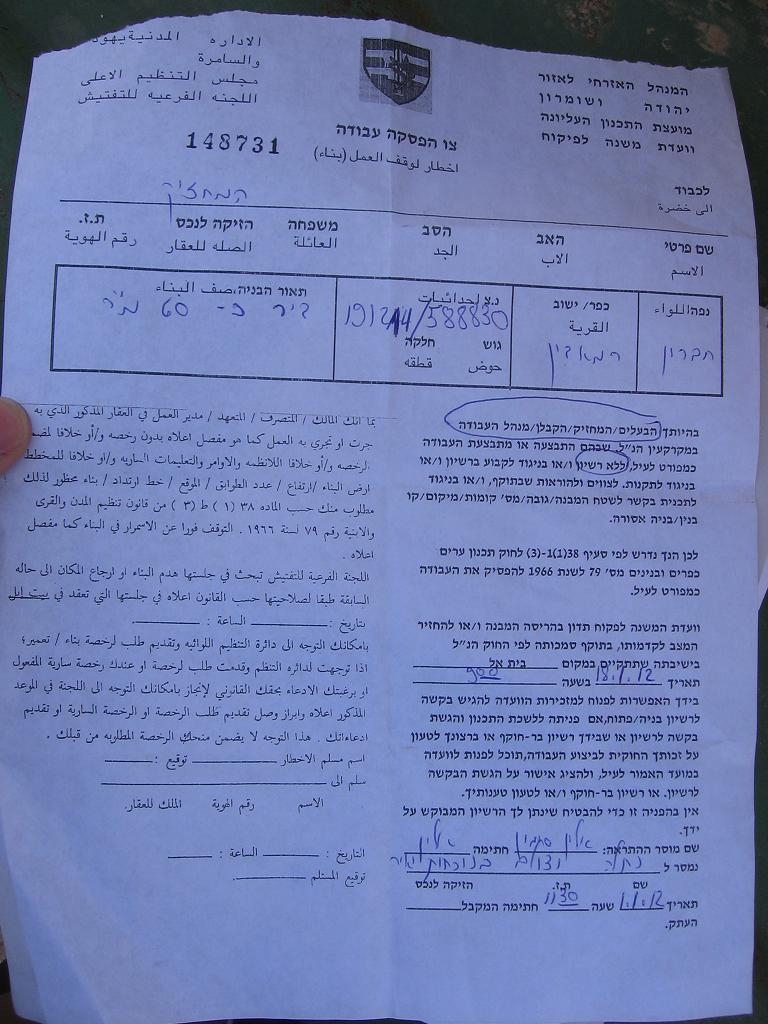 המנהל האזרחי לאזור
יהודה ושומרון
מועצת התכנון העליונה
וועדת משנה לפיקוח
الاداره المدنية يهود
والسامرة
مجلس التنظيم الاعلى
اللجنه الفرعيه للتفتيش
148731
צו הפסקה עבודה
اخطار لوقف العمل (بناء)
לכבוד
الى حضرة
המחזיק
שם פרטי האב הסב משפחה הזיקה לנכס ת.ז.
الاسم الاب الجد العائلة الصله للعقار رقم الهوية
נפה اللواء
חברון
כפר/ ישוב
القرية
נ.צ احداثيات
191214/588830
גוש חלקה
حوض قطقه
תאור הבניה، صف البناء
דיר כ- 60 מ"ר
בהיותך הבעלים/המחזיק/הקבלן/מנהל העבודה
במקרקעין הנ"ל, שבהם התבצעה או מתבצעת העבודה
כמפורט לעיל, ללא רשיון ו/או בניגוד לקבוע ברשיון ו/או
בניגוד לתקנות. לצווים ולהוראות שבתוקף, ו/או בניגוד
לתכנית בקשר לשטח המבנה/גובה/מס' קומות/מיקום/קו
בנין/בניה אסורה.
לכן הנך נדרש לפי סעיף 38(1)(1-3) לחוק תכנון ערים
כפרים ובנינים מס' 79 לשנת 1966 להפסיק את העבודה
כמפורט לעיל.
וועדת המשנה לפקוח תדון בהריסה המבנה ו/או להחזיר
המצב לקדמותו, בתוקף סמכותה לפי החוק הנ"ל
בישיבתה שתתקיים במקום בית אל
תאריך בשעה 900
בידך האפשרות לפנות למזכירות הוועדה להגיש בקשה
לרשיון בניה/פתוח, אם פניתה ללשכת התכנון והגשת
בקשה לרשיון או שבידך רשיון בר-חוקף או ברצונך לטעון
על זכותך החוקית לביצוע העבודה, תוכל לפנות לוועדה
במועד האמור לעיל, ולהציג אישור על הגשת הבקשה
לרשיון. או רשיון בר-חוקף ו/או לטעון טענותיך.
אין בהפניה זו כדי להבטיח שינתן לך הרשיון המבוקש על
ידך.
שם מוסר ההתראה: חתימה
נמסר ל
שם ת.ז. הזיקה לנכס
תאריך שעה 1130 חתימה המקבל
העתק.
بما انك المالك / المتصرف / المتعهد / مدير العمل في العقار المذكور الذي به
جرت او تجري به العمل كما هو مفصل اعلاه بدون رخصه و/أو خلافا لمضم
لرخصه و/أو خلافا للانظمه والاوامر والتعليمات الساريه و/او خلافا للمخطط
ارض البناء /ارتفاع / عدد الطوابق / الموقع / خط ارتداد / بناء محظور لذلك
مطلوب منك حسب الماده ٣٨ (١) ط (٣) من قانون تنظيم المدن والقرى
والابنية رقم ٧٩ لسنة ١٩٦٦ . التوقف فورا عن الاسمرار في البناء كما مفصل
اعلاه .
اللجنة الفرعية للتفتيش تبحث في جلستها هدم البناء او ارجاع المكان الى حاله
السابقة طبقا لصلاحيتها حسب القانون اعلاه في جلستها التي تعقد في بيت ايل
بتاريخ : الساعة :
بامكانك التوجه الى دائرة التنظيم اللوائيه وتقديم طلب لرخصة بناء / تعمير؛
اذا توجهت لدائره التنظم وقدمت طلب لرخصة او عندك رخصة سارية المفعول
او برغبتك الادعاء بحقك القانوني لإنجاز بامكانك التوجه الى اللجنة في الموعد
المذكور اعلاه وابراز وصل تقديم طلب الرخصة او الرخصة السارية او تقديم
ادعاءاتك . هذا التوجه لا يضمن منحك الرخصة المطلوبه من قبلك .
اسم مسلم الاخطار توقيع :
سلم الى
الاسم رقم الهوية الملك للعقار.
التاريخ : الساعة :
توقيع المستلم